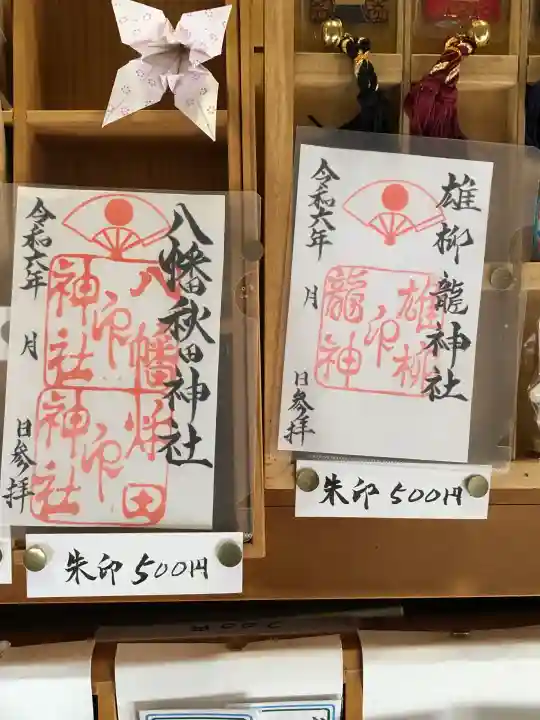 八幡秋田神社
八幡
神社
印
秋田
神社
印
令和六年
月
日参拝
朱印 500円
雄柳龍神社
雄柳
龍神
印
令和六年
月
日参拝
朱印 500円